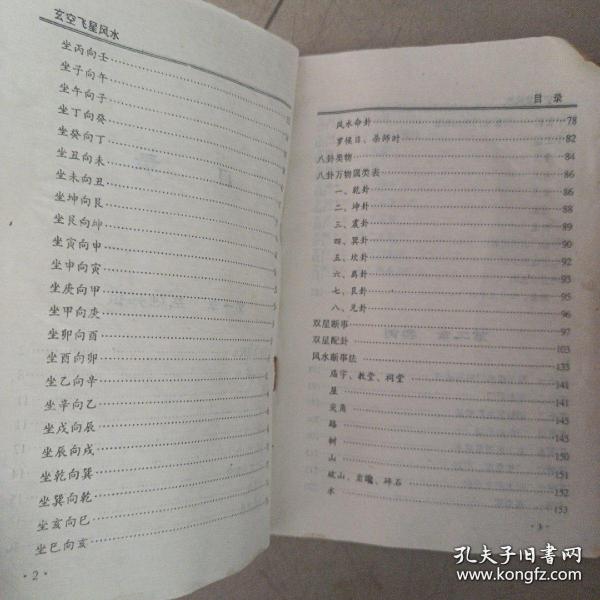 玄空飞星风水
坐丙向壬
坐子向午
坐午向子
坐丁向癸
坐癸向丁
坐丑向未
坐未向丑
坐坤向艮
坐艮向坤
坐寅向申
坐申向寅
坐庚向甲
坐甲向庚
坐卯向酉
坐酉向卯
坐乙向辛
坐辛向乙
坐戌向辰
坐辰向戌
坐乾向巽
坐巽向乾
坐亥向巳
坐巳向亥
·2·
目 录
风水命卦 78
罗候日、杀师时 82
八卦类物 84
八卦万物属类表 86
一、乾卦 86
二、坤卦 88
三、震卦 89
四、巽卦 90
五、坎卦 92
六、离卦 93
七、艮卦 95
八、兑卦 96
双星断事 97
双星配卦 103
风水断事法 133
庙宇、教堂、祠堂 141
屋 141
尖角 145
路 145
树 150
山 151
破山、岩巉、碎石 152
水 153
·3·
孔夫子旧书网
www.kongfz.com